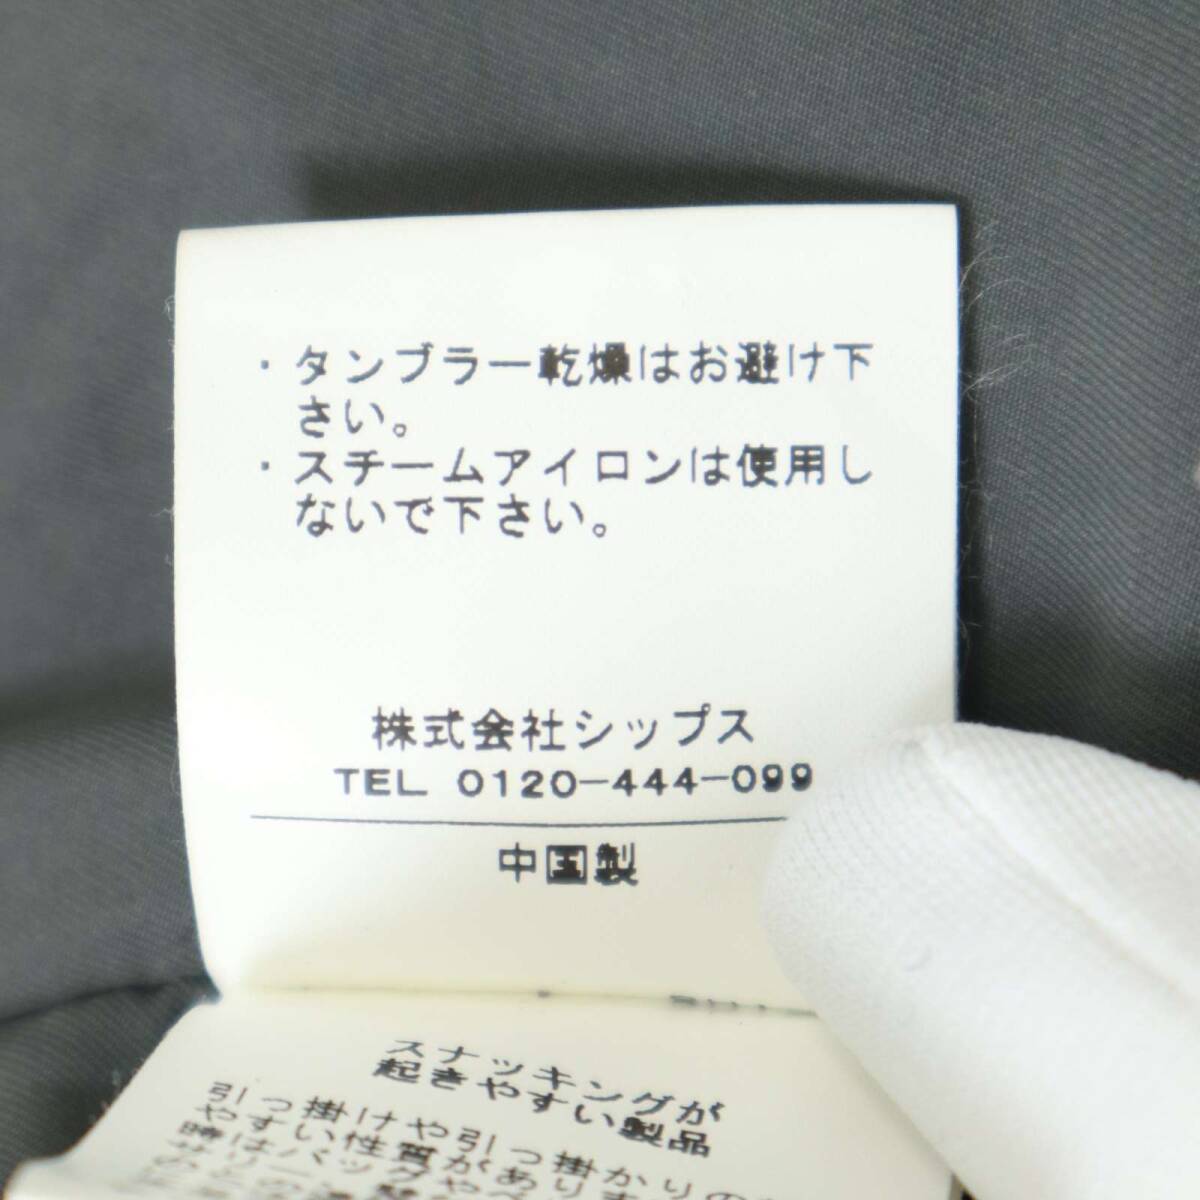 ・タンブラー乾燥はお避け下
さい。
・スチームアイロンは使用し
ないで下さい。
株式会社シップス
TEL 0120-444-099
中国製
スナッキングが
起きやすい製品
引っ掛けや引っ掛かりの
やすい性質がありま
時はバッグやベ